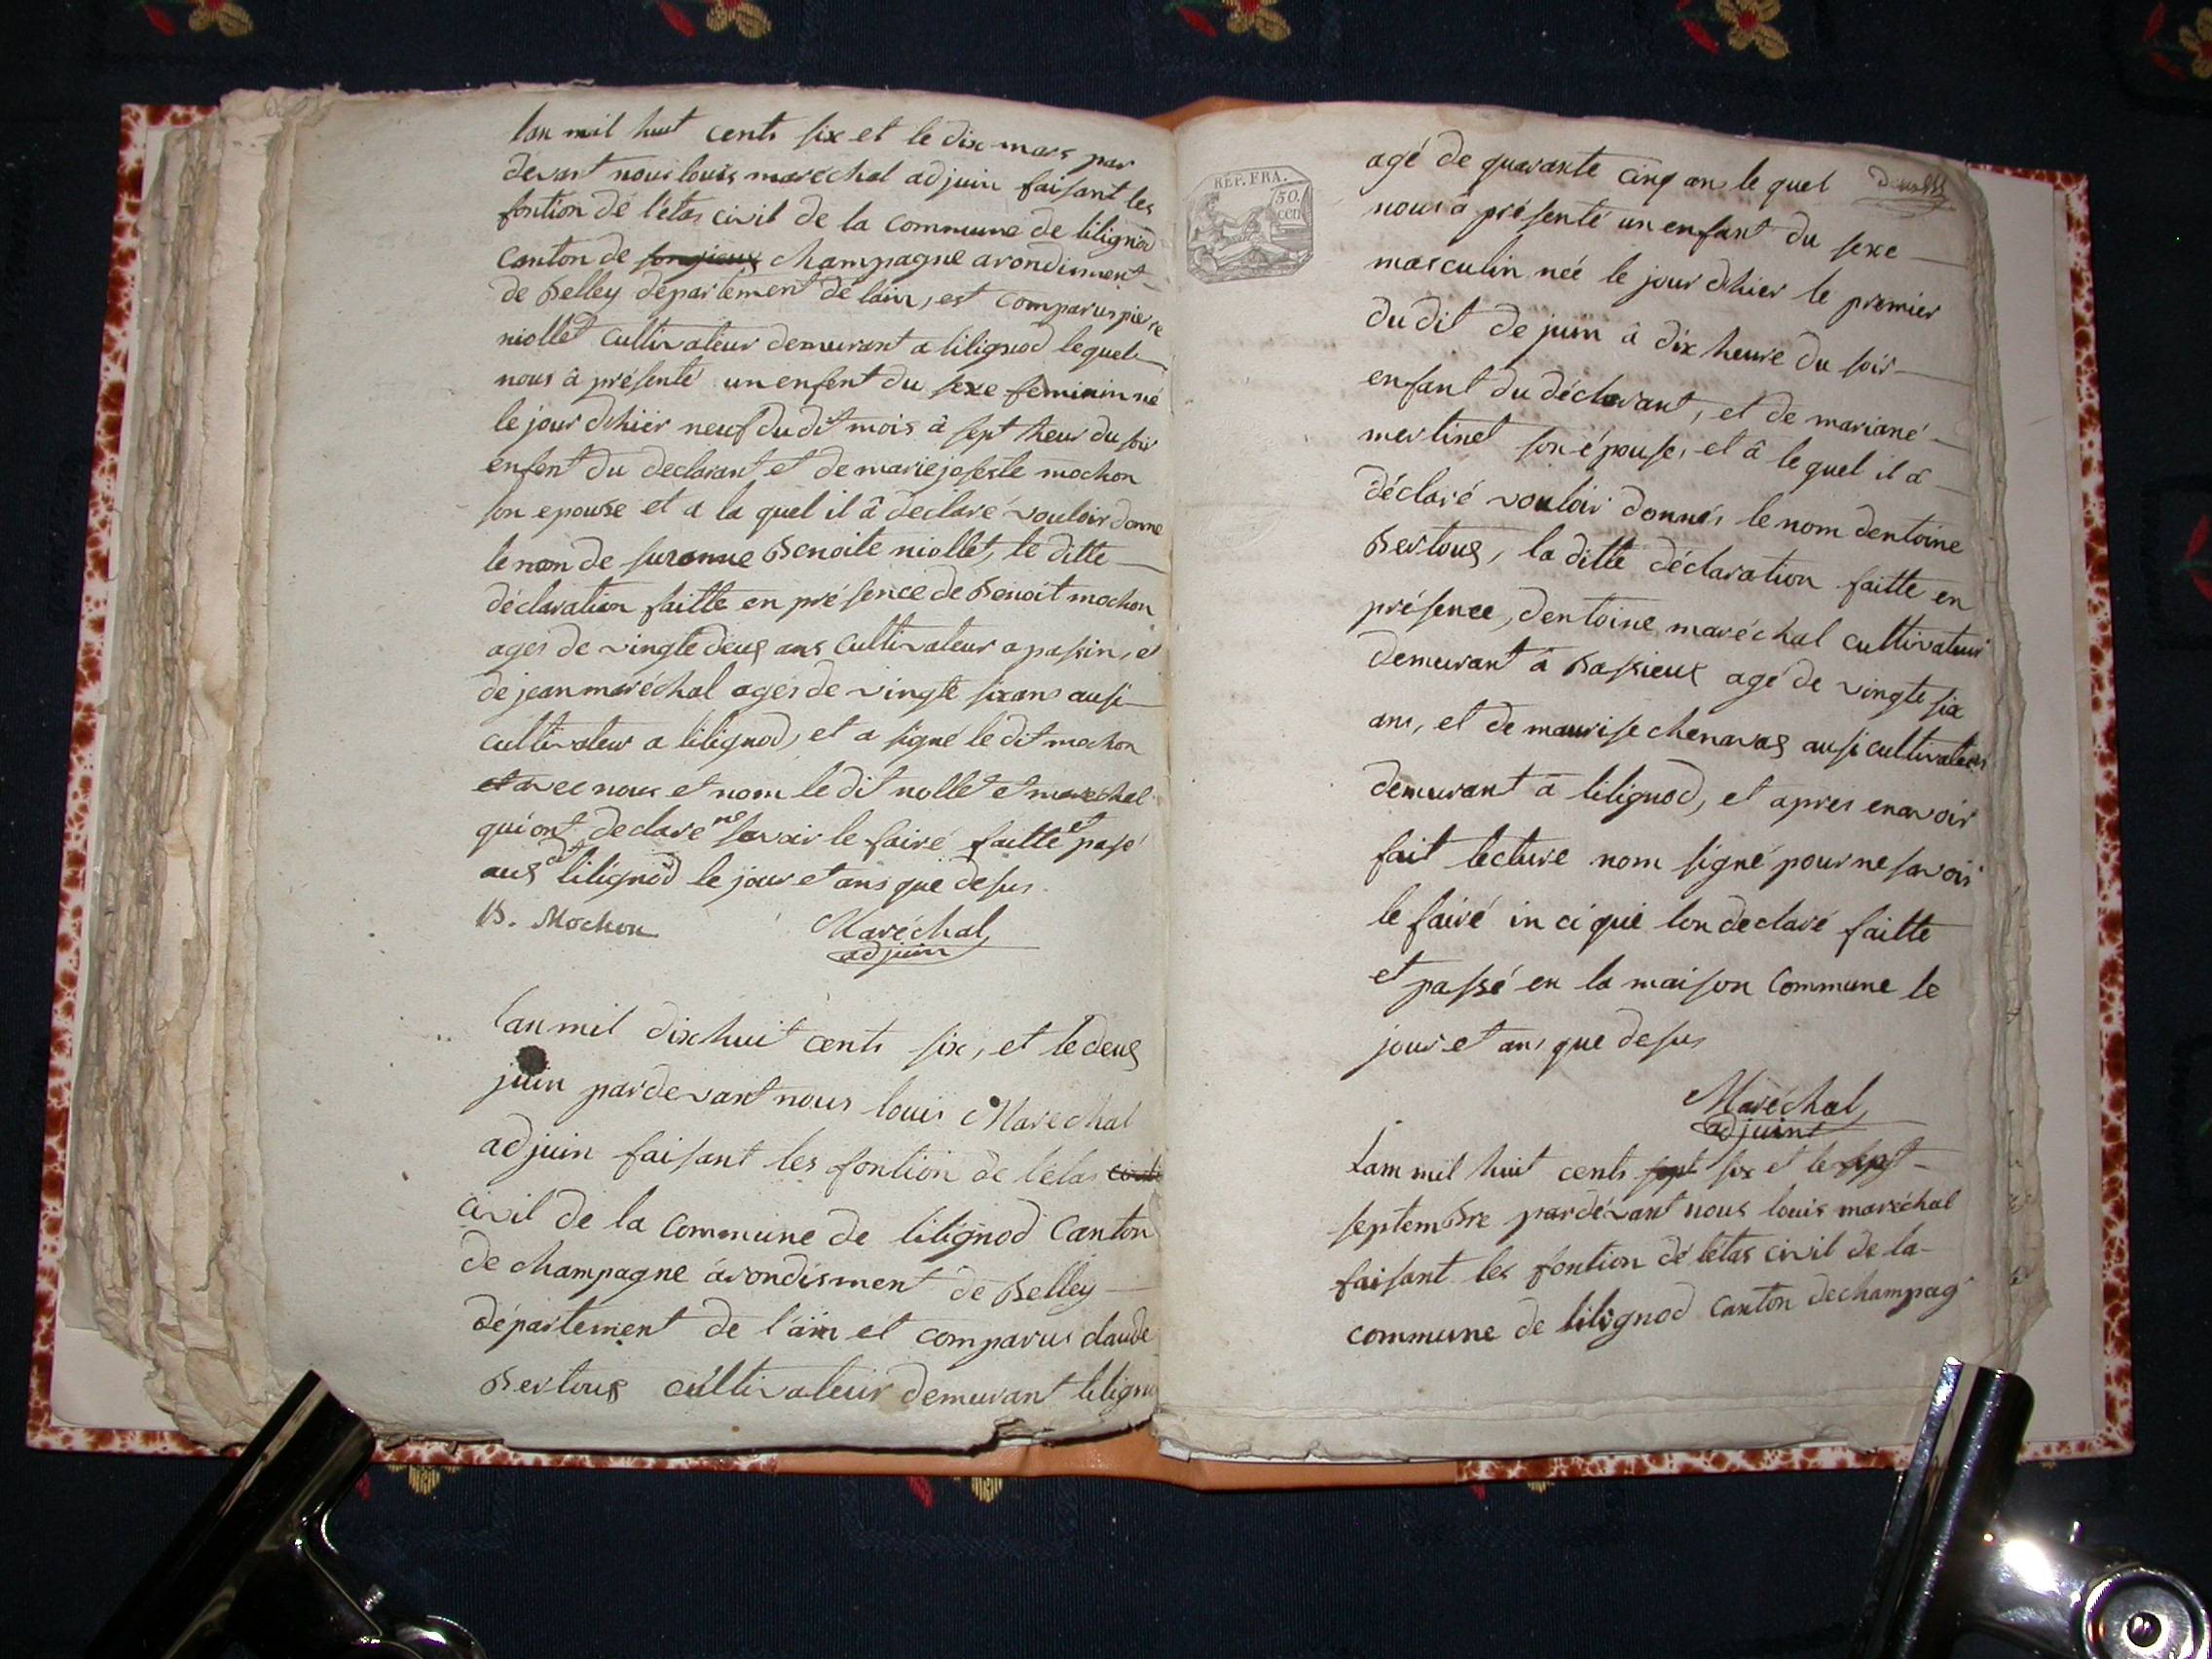 lan mil huit cents six et le dix mars par
devant nous louis maréchal adjuin faisant les
fontion dé l'étas civil de la commune de lilignod
Canton de songieux champagne arondisment
de Belley département dé lain, est comparus pierre
niollet cultivateur demeurant a lilignod lequel
nous à présenté un enfent du sexe feminin né
le jour dhiér neuf du dit mois à sept heur du soir
enfent du declarant et de marie joseste mochon
son epouse et a la quel il â déclaré vouloir donné
le nom de suzanne Benoite niollet, le ditte
déclaration faitte en présence de Benoit mochon
ages de vingte deux ans cultivateur a passin, et
de jean maréchal agés de vingte six ans ausi
cultivateur a lilignod, et a signé le dit mochon
et avec nous et nom le dit nollet et marechal
qui ont declaré ne savoir le fairé faitte et pasé
aus dt lilignod le jour et ans que desus.
B. Mochon Maréchal
adjuin
lan mil dixhuit cents six, et le deux
juin pardevant nous louis Maréchal
adjuin faisant les fontion de l'etas civil
civil de la commune de lilignod Canton
de champagne árondisment de Belley
département de l'ain et comparus claude
Bertoux cultivateur demeurant liligno
REP. FRA.
50.
cen
agé de quarante cinq ans le quel
nous à présenté un enfant du sexe
masculin néé le jour dhier le premier
du dit de juin â dix heure du soir
enfant du déclarant, et de mariané
mertinet son épouse, et â le quel il â
déclaré vouloir donnés le nom dentoine
Bertoux, la ditte déclaration faitte en
présence, dentoine maréchal cultivateur
demeurant â Bassieux agé de vingte six
ans, et de maurise chenavas ausi cultivateur
demeurant â lilignod, et apres en avoir
fait lecture nom signé pour ne savoir
le fairé in ci qué lon declaré faitte
et passé en la maison commune le
jour et ans que desus
Maréchal
adjuint
Lam mil huit cents sept six et le sept
septembre pardévant nous louis maréchal
faisant les fontion dé létas civil de la
commune de lilignod canton dechampag